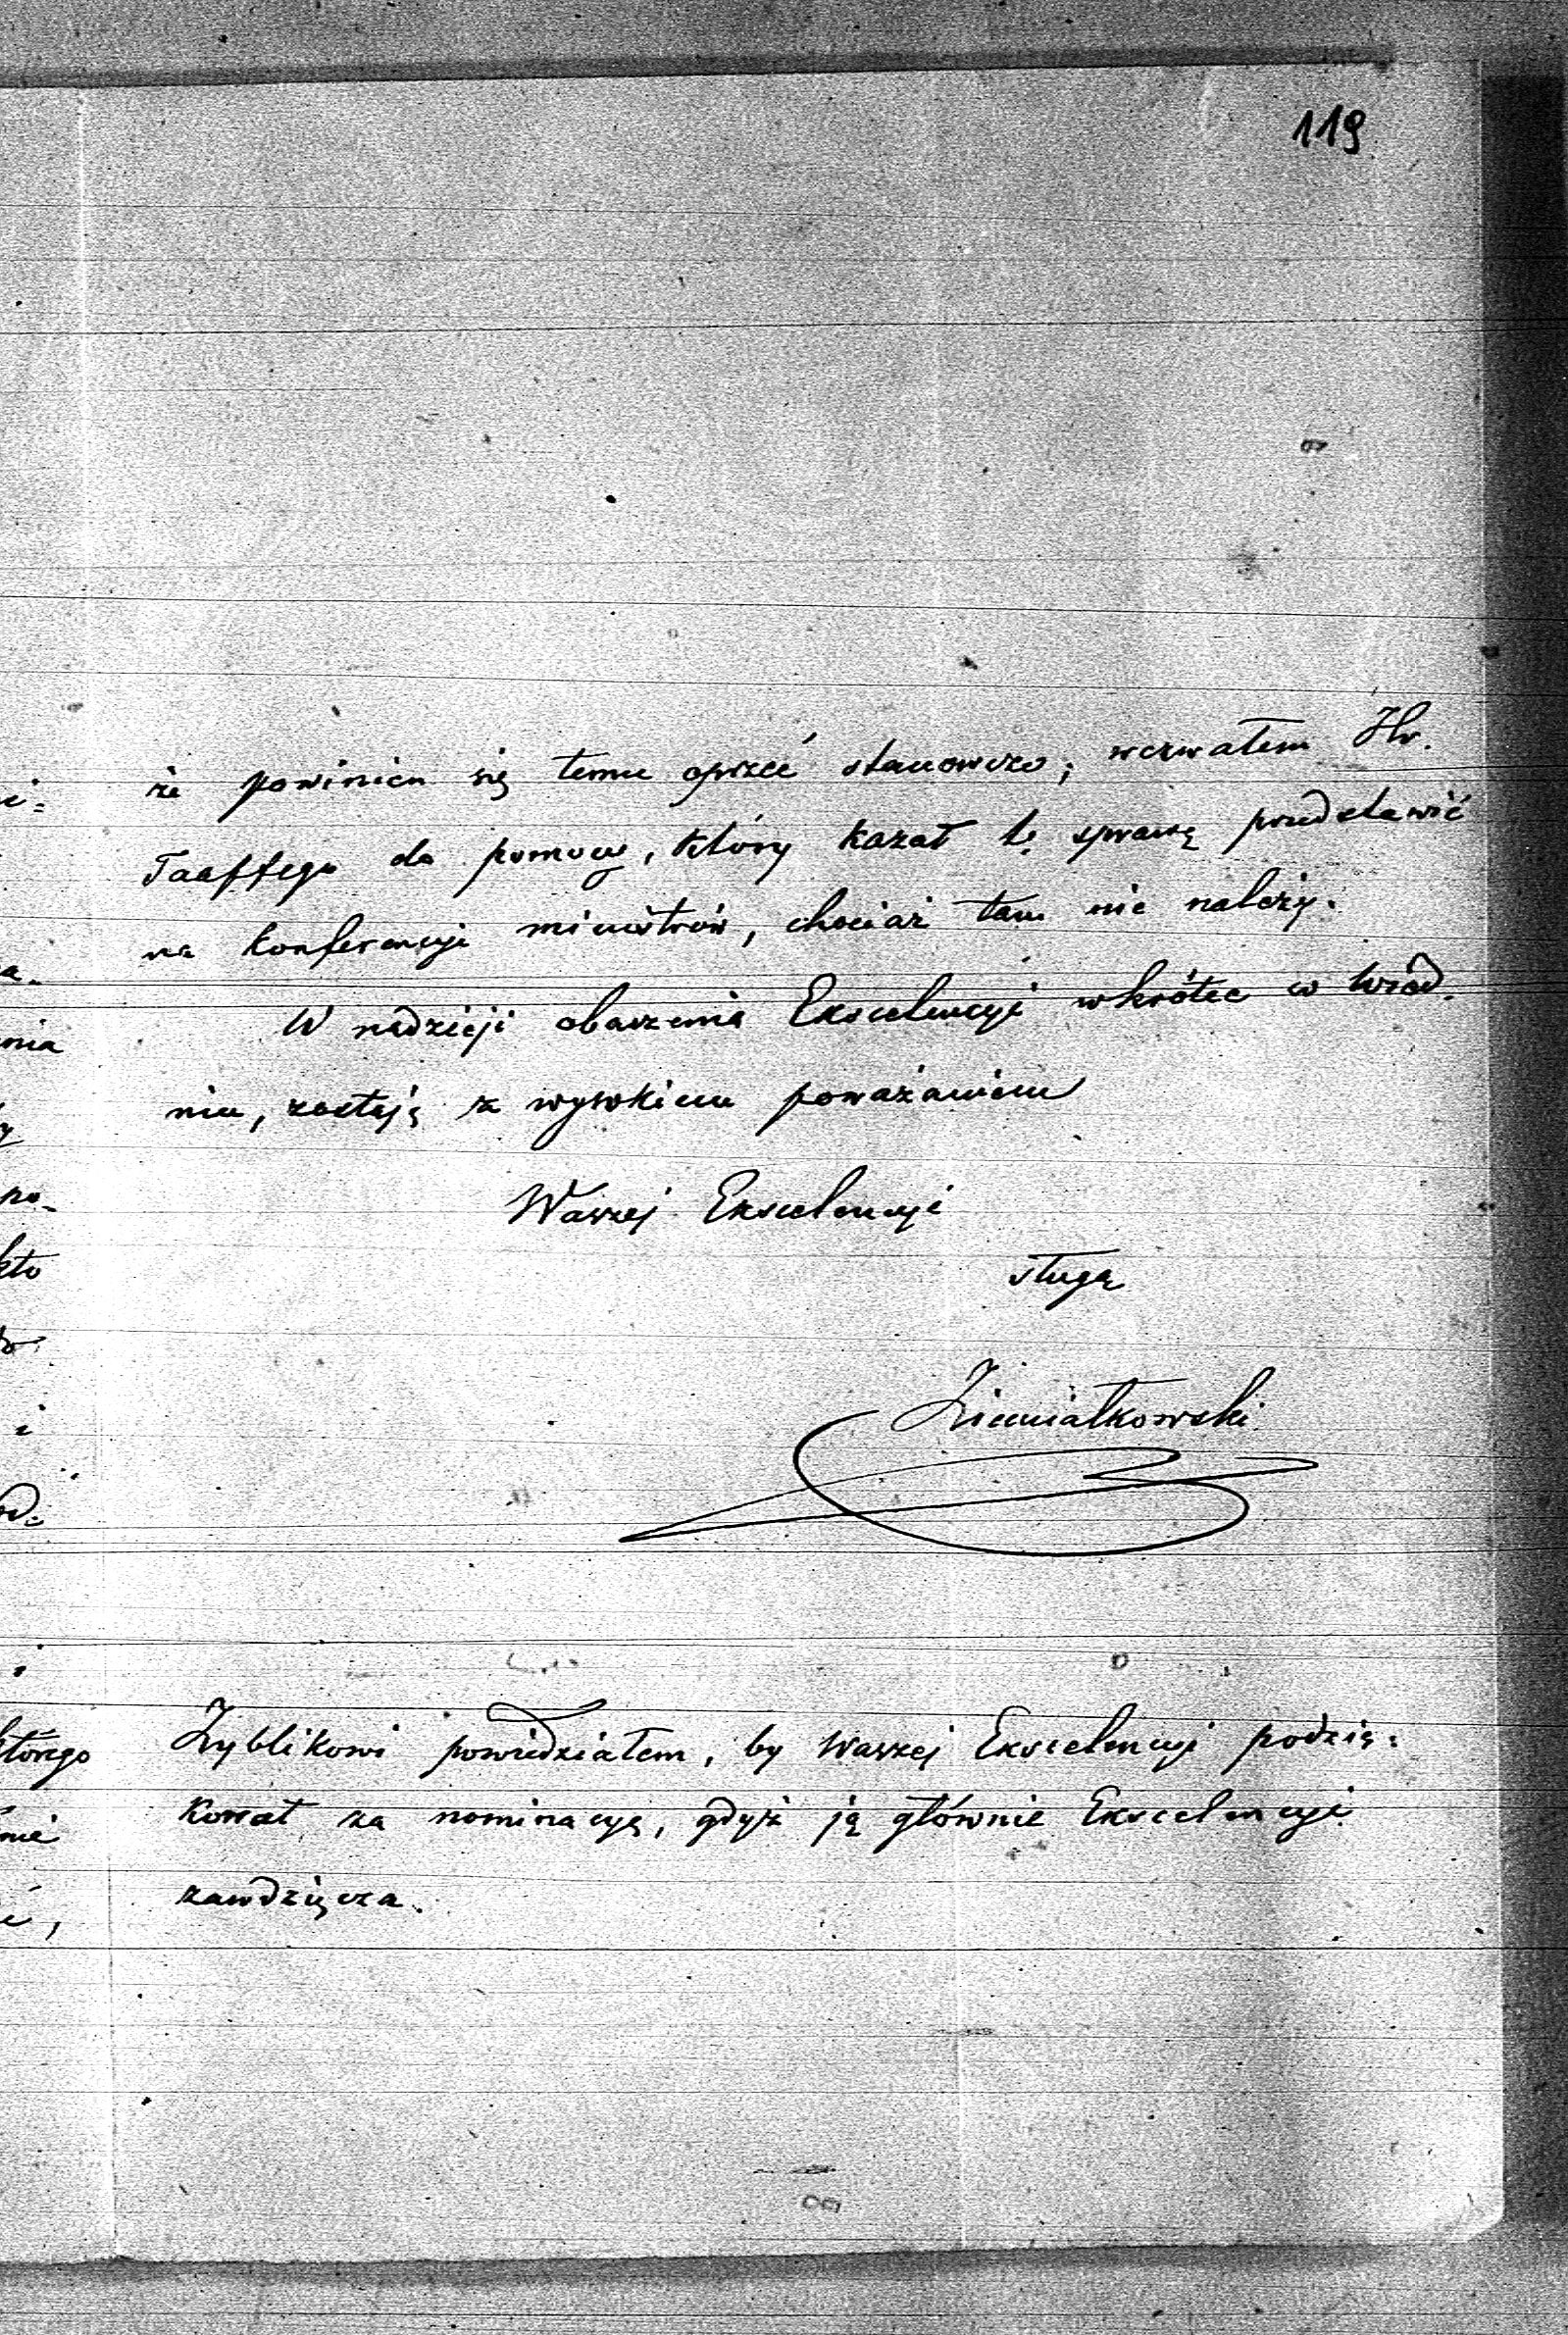 119
że powinien się temu oprzeć stanowczo; wezwałem Hr.
Taaffego do pomocy, który kazał tę sprawę przedstawić
na konferencyi ministrów, chociaż tam nie należy.
W nadzieji obaczenia Excelencyi wkrótce w Wiéd-
niu, zostaję z wysokiem poważaniem
Waszej Excelencyi
sługą
Ziemiałkowski
Zyblikowi powiedziałem, by Waszej Excelencyi podzię-
kował za nominacyę, gdyż ją głównie Excelencyi
zawdzięcza.